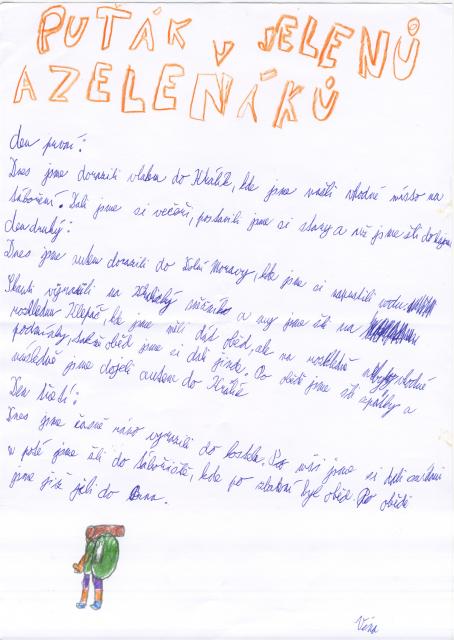 PUŤÁK V JELENŮ
A ZELENÁKŮ
den první:
Dnes jsme dorazili vlakem do Králík, kde jsme našli vhodné místo na
táboření. Dali jsme si večeři, postavili jsme si stany a už jsme šli do
den druhý:
Dnes jsme autem dorazili do Dolní Moravy, kde jsme si napustili vodu.
Skauti vyrazili na Králický a my jsme šli na
rozhlednu Klepáč, kde jsme měli dát oběd, ale na rozhledně nebyly vhodné
podmínky, takže oběd jsme si dali jinde. Po obědě jsme šli zpátky a
následně jsme dojeli autem do Králík
Den třetí:
Dnes jsme časně ráno vyrazili do kostela. Po mši jsme si dali
a poté jsme šli do tábořiště, kde po byl oběd. Po obědě
jsme již jeli do
Věra